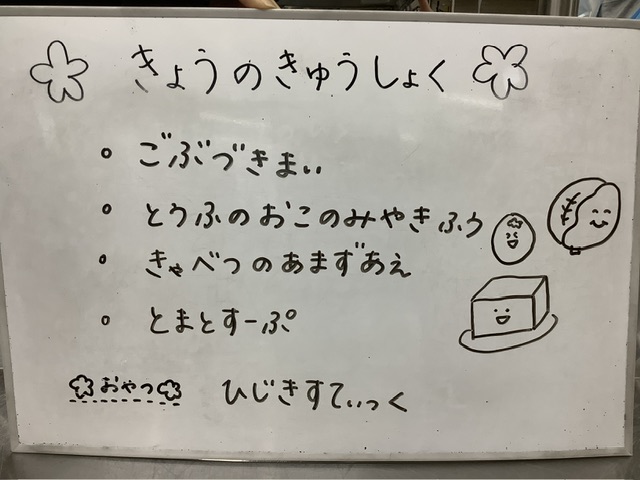 きょうのきゅうしょく
• ごぶづきまい
• とうふのおこのみやきふう
• きゃべつのあまずあえ
• とまとすーぷ
おやつ ひじきすてぃっく